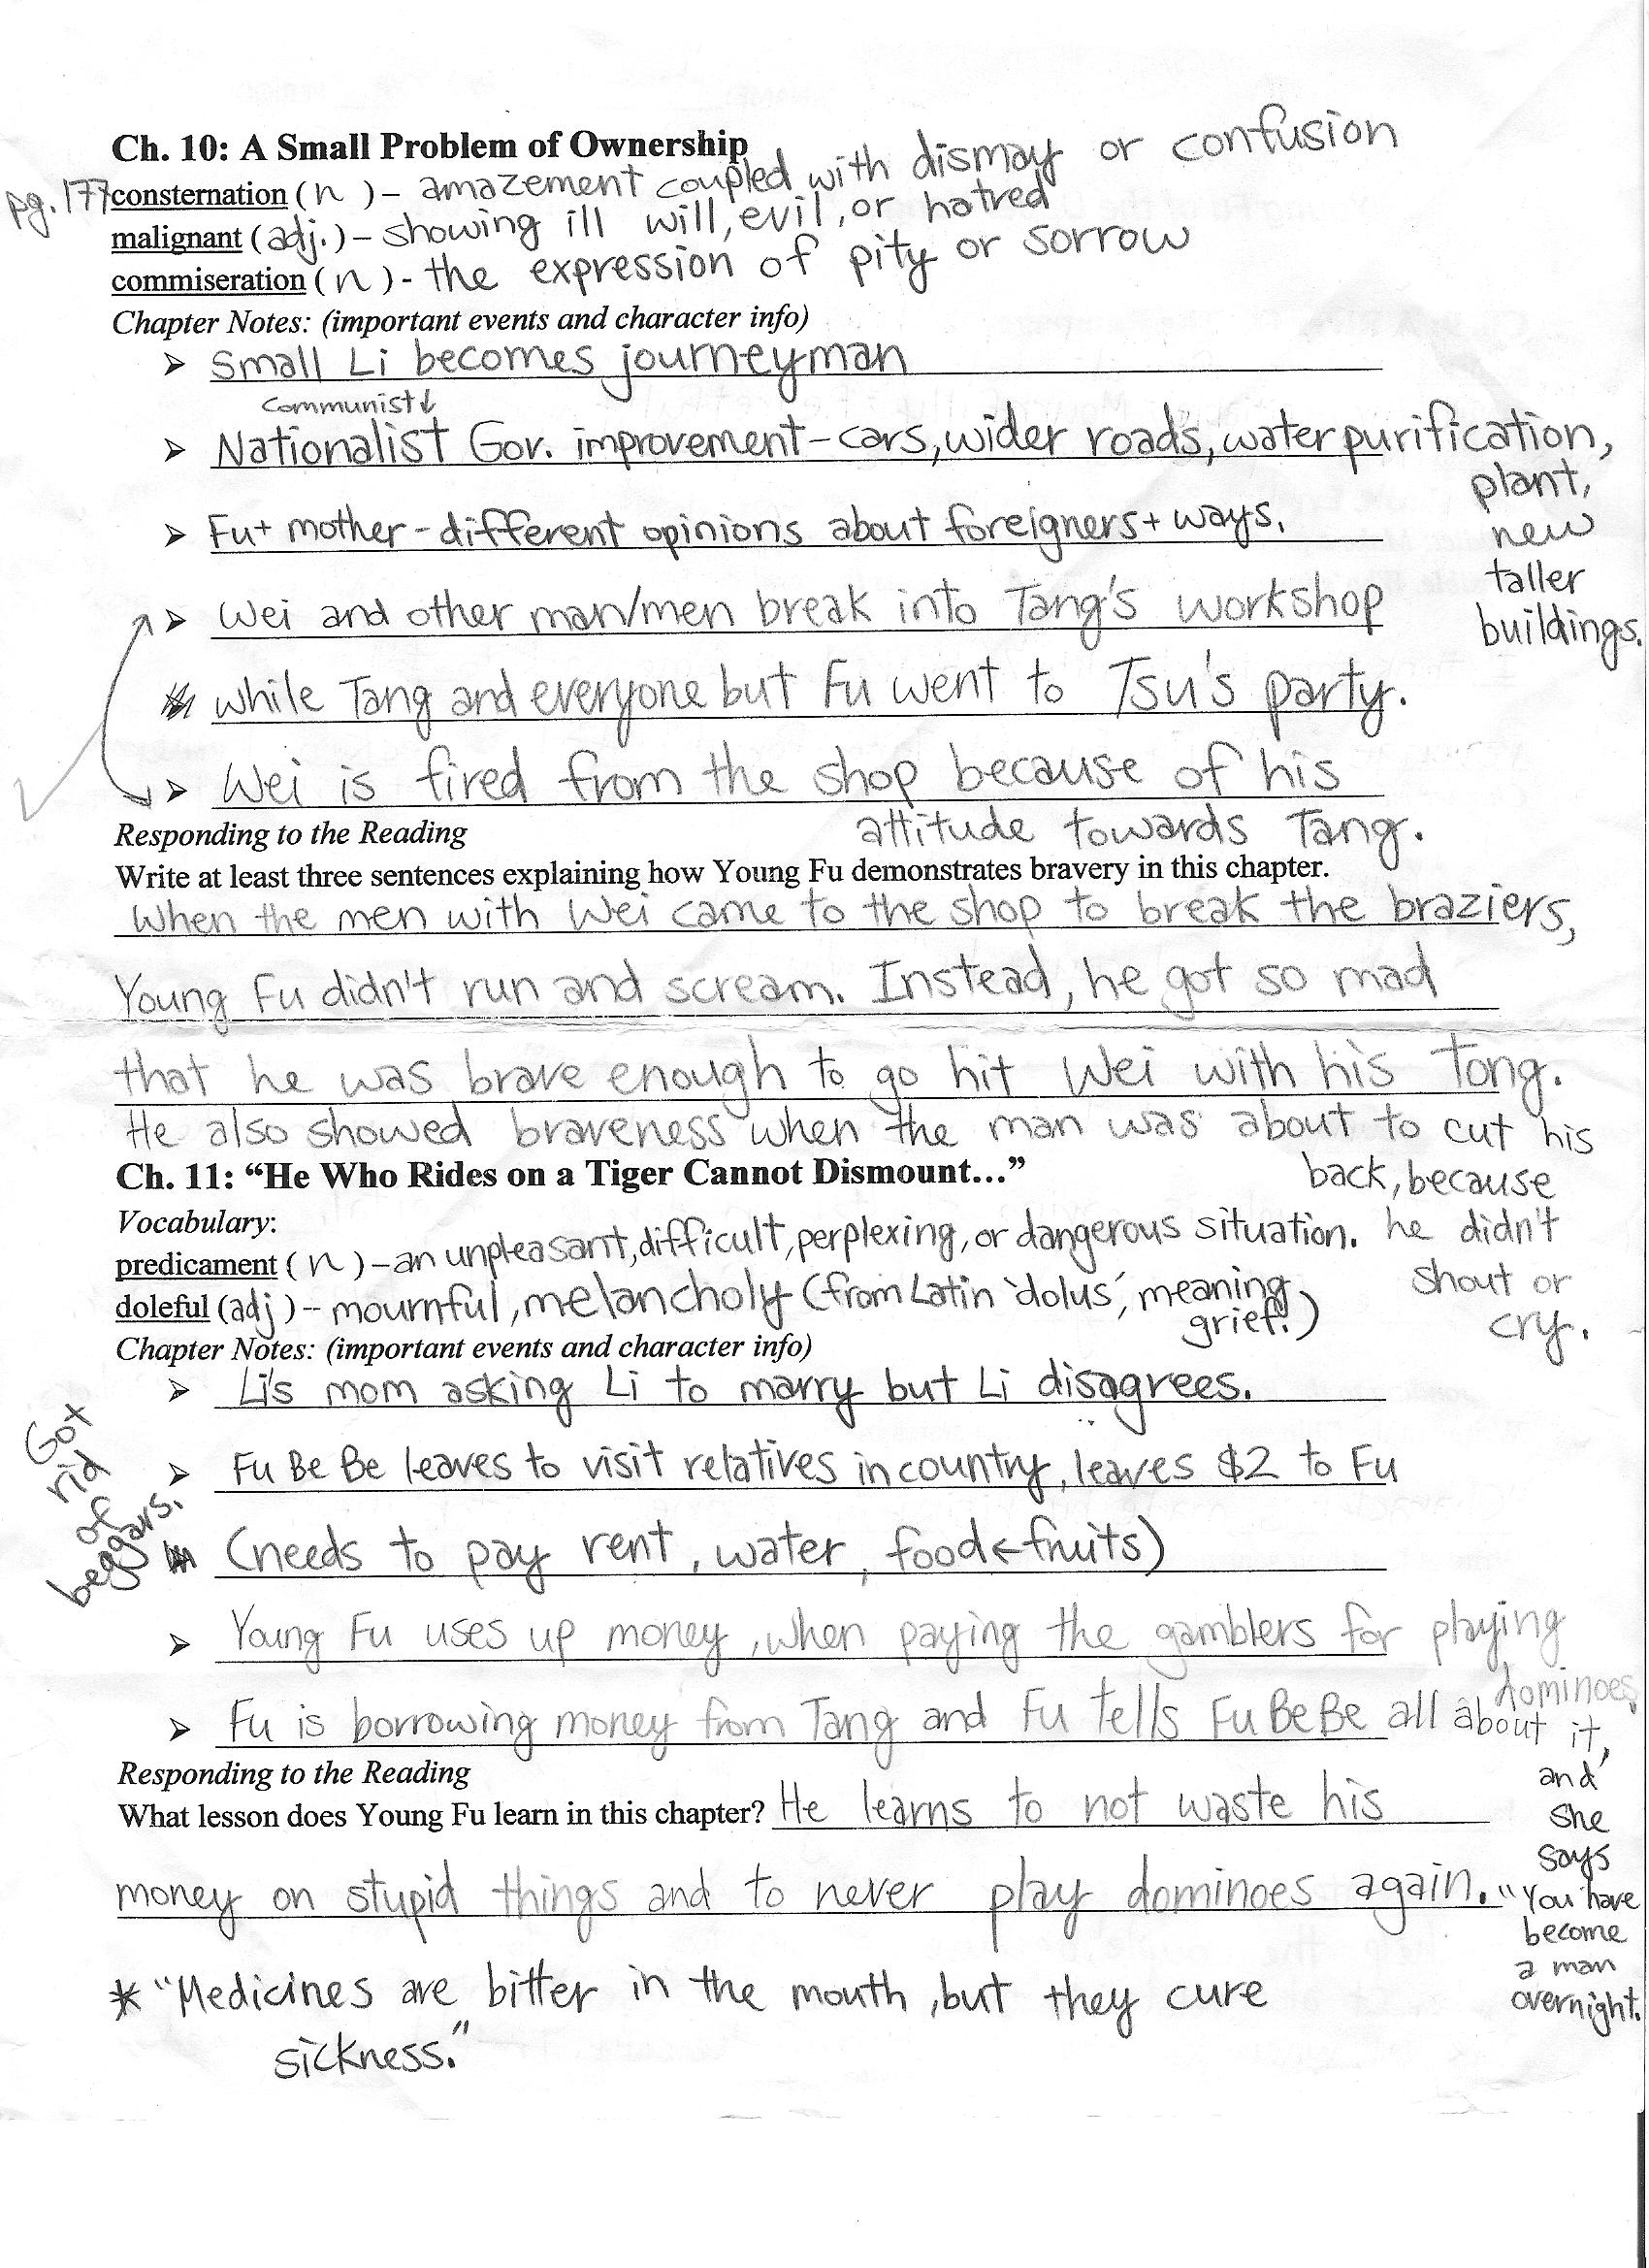 Ch. 10: A Small Problem of Ownership
pg. 177 consternation (n) – amazement coupled with dismay or confusion
malignant (adj.) – showing ill will, evil, or hatred
commiseration (n) - the expression of pity or sorrow
Chapter Notes: (important events and character info)
➢ Small Li becomes journeyman
Communist↓
➢ Nationalist Gov. improvement - cars, wider roads, water purification,
plant,
new
taller
buildings.
➢ Fu + mother - different opinions about foreigners + ways.
➢ Wei and other man/men break into Tang's workshop
while Tang and everyone but Fu went to Tsu's party.
➢ Wei is fired from the shop because of his
attitude towards Tang.
Responding to the Reading
Write at least three sentences explaining how Young Fu demonstrates bravery in this chapter.
When the men with Wei came to the shop to break the braziers,
Young Fu didn't run and scream. Instead, he got so mad
that he was brave enough to go hit Wei with his tong.
He also showed braveness when the man was about to cut his
back, because
he didn't
shout or
cry.
Ch. 11: “He Who Rides on a Tiger Cannot Dismount…”
Vocabulary:
predicament (n) – an unpleasant, difficult, perplexing, or dangerous situation.
doleful (adj) – mournful, melancholy (from Latin 'dolus', meaning
grief.)
Chapter Notes: (important events and character info)
➢ Li's mom asking Li to marry but Li disagrees.
Got
rid
of
beggars.
➢ Fu Be Be leaves to visit relatives in country, leaves $2 to Fu
(needs to pay rent, water, food ← fruits)
➢ Young Fu uses up money, when paying the gamblers for playing
dominoes.
➢ Fu is borrowing money from Tang and Fu tells Fu Be Be all about it,
and
she
says
"You have
become
a man
overnight.
Responding to the Reading
What lesson does Young Fu learn in this chapter? He learns to not waste his
money on stupid things and to never play dominoes again.
* "Medicines are bitter in the mouth, but they cure
sickness."